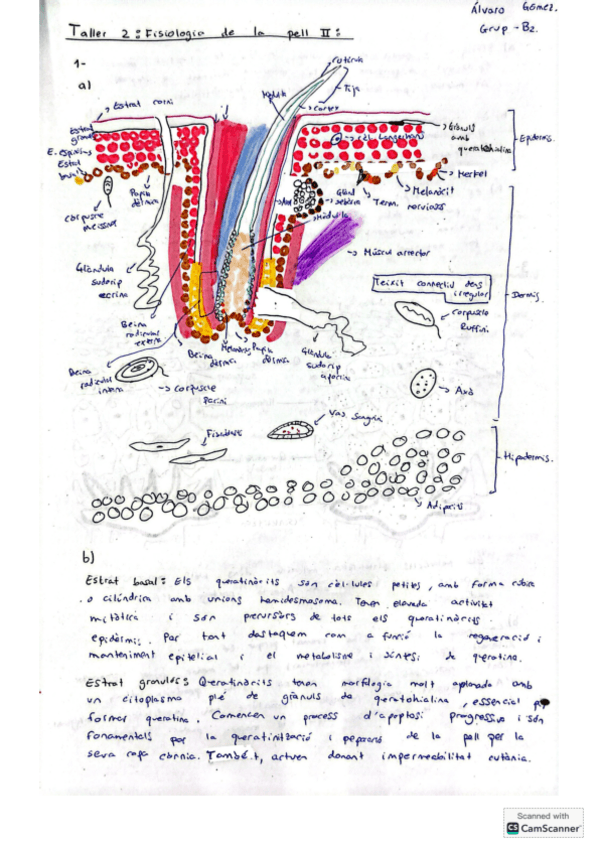 Álvaro Gómez.
Grup - B2.
Taller 2: Fisiologia de la pell II:
1-
a)
cutícula
Tija
Medul·la
cortex
Estrat corni
Estrat
granulós
E. espinós
Estrat
basal
Grànuls
amb
queratohialina
cèl. Langerhans
Epidermis
Merkel
Melanòcit
Term.
nerviosos
Gland
sebàcea
Papil·la
dèrmica
corpuscle
meissner
Medul·la
Múscul erector
Teixit connectiu dens
irregular
Dermis.
corpuscle
Ruffini
Glàndula
sudoríp
ecrina
Beina
radicular
externa
Beina
dèrmica
Papil·la
dèrmica
Glàndula
sudoríp
apocrina
Beina
radicular
interna
corpuscle
Pacini
Axó
Vas sanguini
Fibroblasts
Hipodermis.
Adipòcits
b)
Estrat basal: Els queratinòcits són cèl·lules petites, amb forma cúbica
o cilíndrica amb unions hemidesmosoma. Tenen elevada activitat
mitòtica i són precursors de tots els queratinòcits
epidèrmics. Per tant destaquem com a funció la regeneració i
manteniment epitelial i el metabolisme i síntesi de queratina.
Estrat granulós: Queratinòcits tenen morfologia molt aplanada amb
un citoplasma ple de grànuls de queratohialina, essencial per
formar queratina. Comencen un procés d'apoptosi progressiva i són
fonamentals per la queratinització i de la pell per la
seva capa còrnia. També, actuen donant impermeabilitat cutània.
Scanned with
CS CamScanner